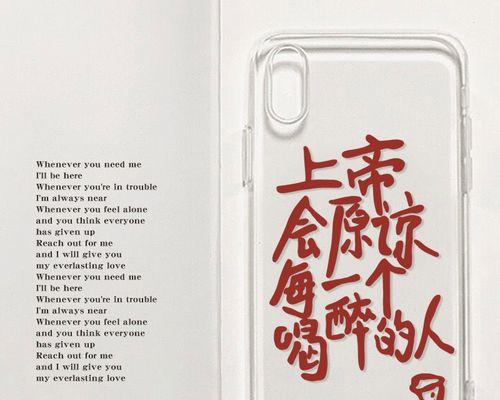 Whenever you need me
I'll be here
Whenever you're in trouble
I'm always near
Whenever you feel alone
and you think everyone
has given up
Reach out for me
and I will give you
my everlasting love
Whenever you need me
I'll be here
Whenever you're in trouble
I'm always near
Whenever you feel alone
and you think everyone
has given up
Reach out for me
and I will give you
my everlasting love
上帝
会原谅
每一个
喝醉的人